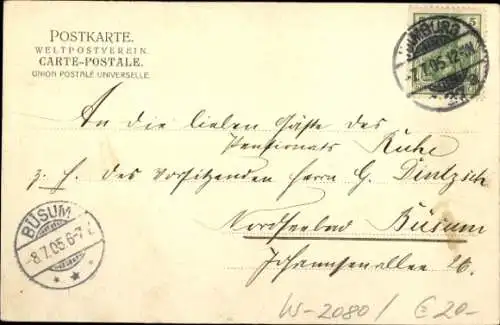 POSTKARTE.
WELTPOSTVEREIN.
CARTE-POSTALE.
UNION POSTALE UNIVERSELLE.
5
HAMBURG
7.7.05.12
An die lieben Gäste des
Pensionats Ruhe
z. H. des Vorsitzenden Herrn G.
Nordseebad Büsum
Johannsenallee 26.
BÜSUM
8.7.05.6-7
W-2080/ €20-